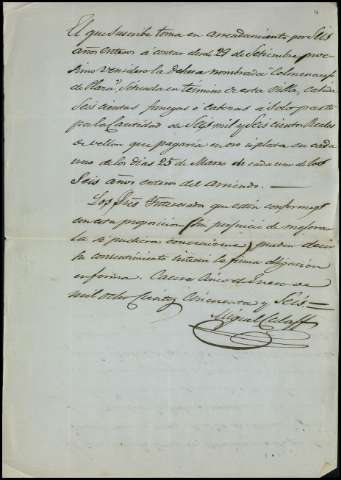 El que suscribe toma en arrendamiento por Seis
años enteros a contar desde 29 de Setiembre pro-
simo venidero la dehesa nombrada Colmenarejo
de Plara situada en termino de esta Villa, cabida
Seis cientas fanegas o cuerdas a solo pasto
por la Cantidad de Seis mil y Seis ciento Reales
de vellon que pagaria en oro o plata en cada
uno de los dias 25 de Marzo de cada uno de los
Seis años enteros del arriendo.
Los Sres Interesados que esten conformes
con esta proposicion sin perjuicio de mejorar
la si pudiera convenirme, pueden decir
su consentimiento la firma obligacion
en forma. Caceres cinco de Enero de
mil ocho Cientos Cincuenta y Seis=
Miguel Calaff